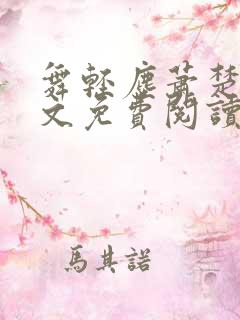 舞輕塵蕭楚
文免費閱讀
馬其諾